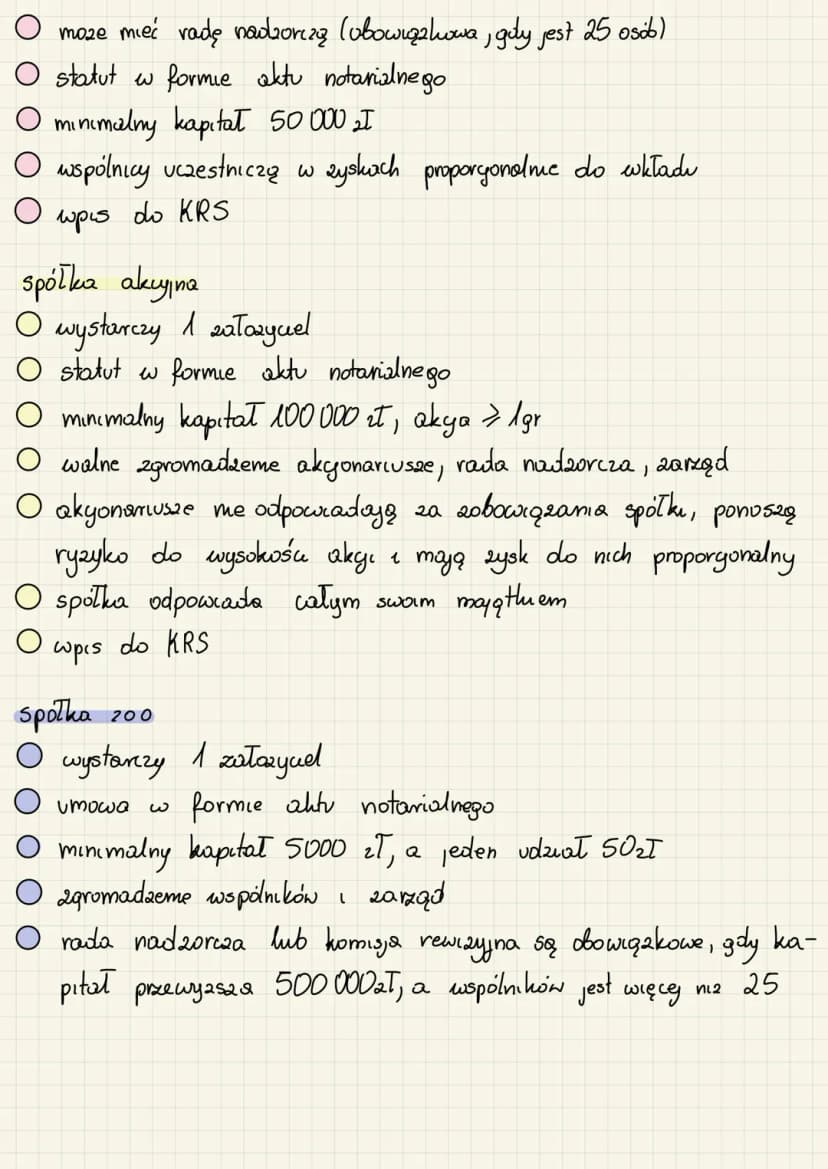 może mieć radę nadzorczą (obowiązkowa, gdy jest 25 osób)
statut w formie aktu notarialnego
minimalny kapitał 50 000 zł
wspólnicy uczestniczą w zyskach proporcjonalnie do wkładu
wpis do KRS
spółka akcyjna
wystarczy 1 założyciel
statut w formie aktu notarialnego
minimalny kapitał 100 000 zł, akcja ⩾ 1gr
walne zgromadzenie akcjonariusze, rada nadzorcza, zarząd
akcjonariusze nie odpowiadają za zobowiązania spółki, ponoszą
ryzyko do wysokości akcji i mają zysk do nich proporcjonalny
spółka odpowiada całym swoim majątkiem
wpis do KRS
spółka zoo
wystarczy 1 założyciel
umowa w formie aktu notarialnego
minimalny kapitał 5000 zł, a jeden udział 50zł
zgromadzenie wspólników i zarząd
rada nadzorcza lub komisja rewizyjna są obowiązkowe, gdy ka-
pitał przewyższa 500 000zł, a wspólników jest więcej niż 25